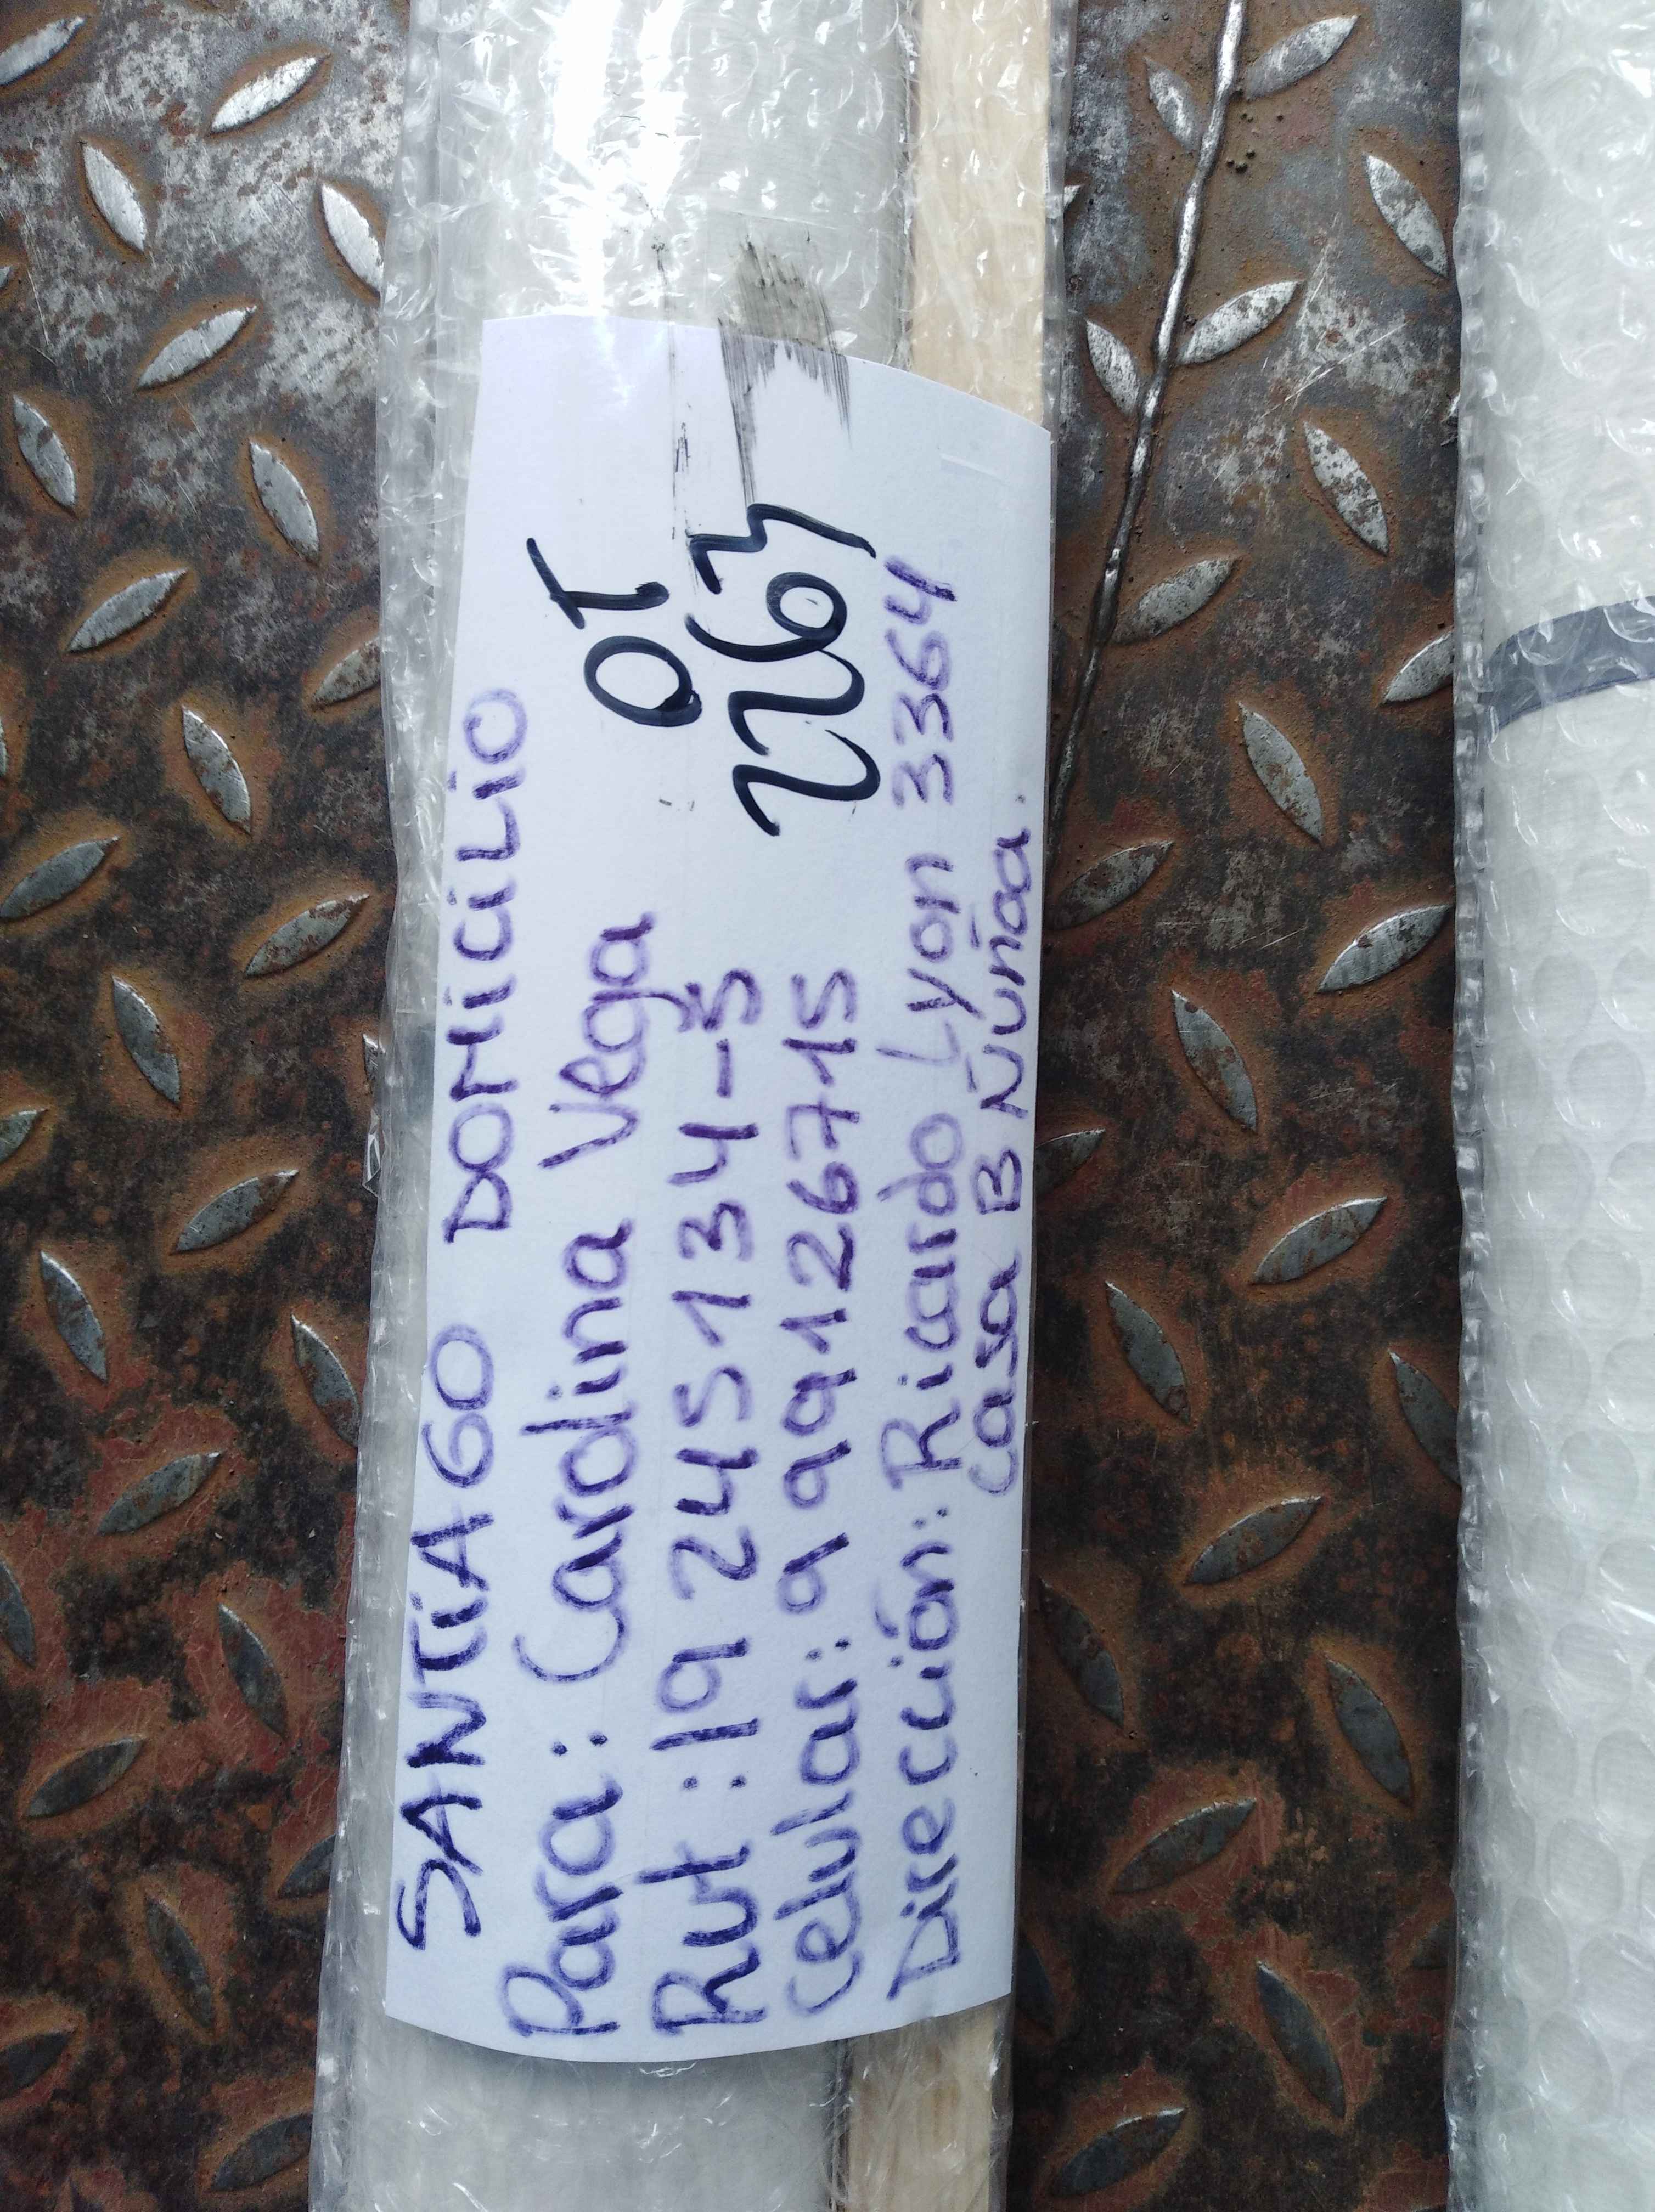 SANTiAGO DOMiCiLiO
Para: Carolina Vega
Rut: 19 245 134-5
Celular: 9 99126715
Dirección: Ricardo Lyon 3364
Casa B Ñuñoa.
OT
2263